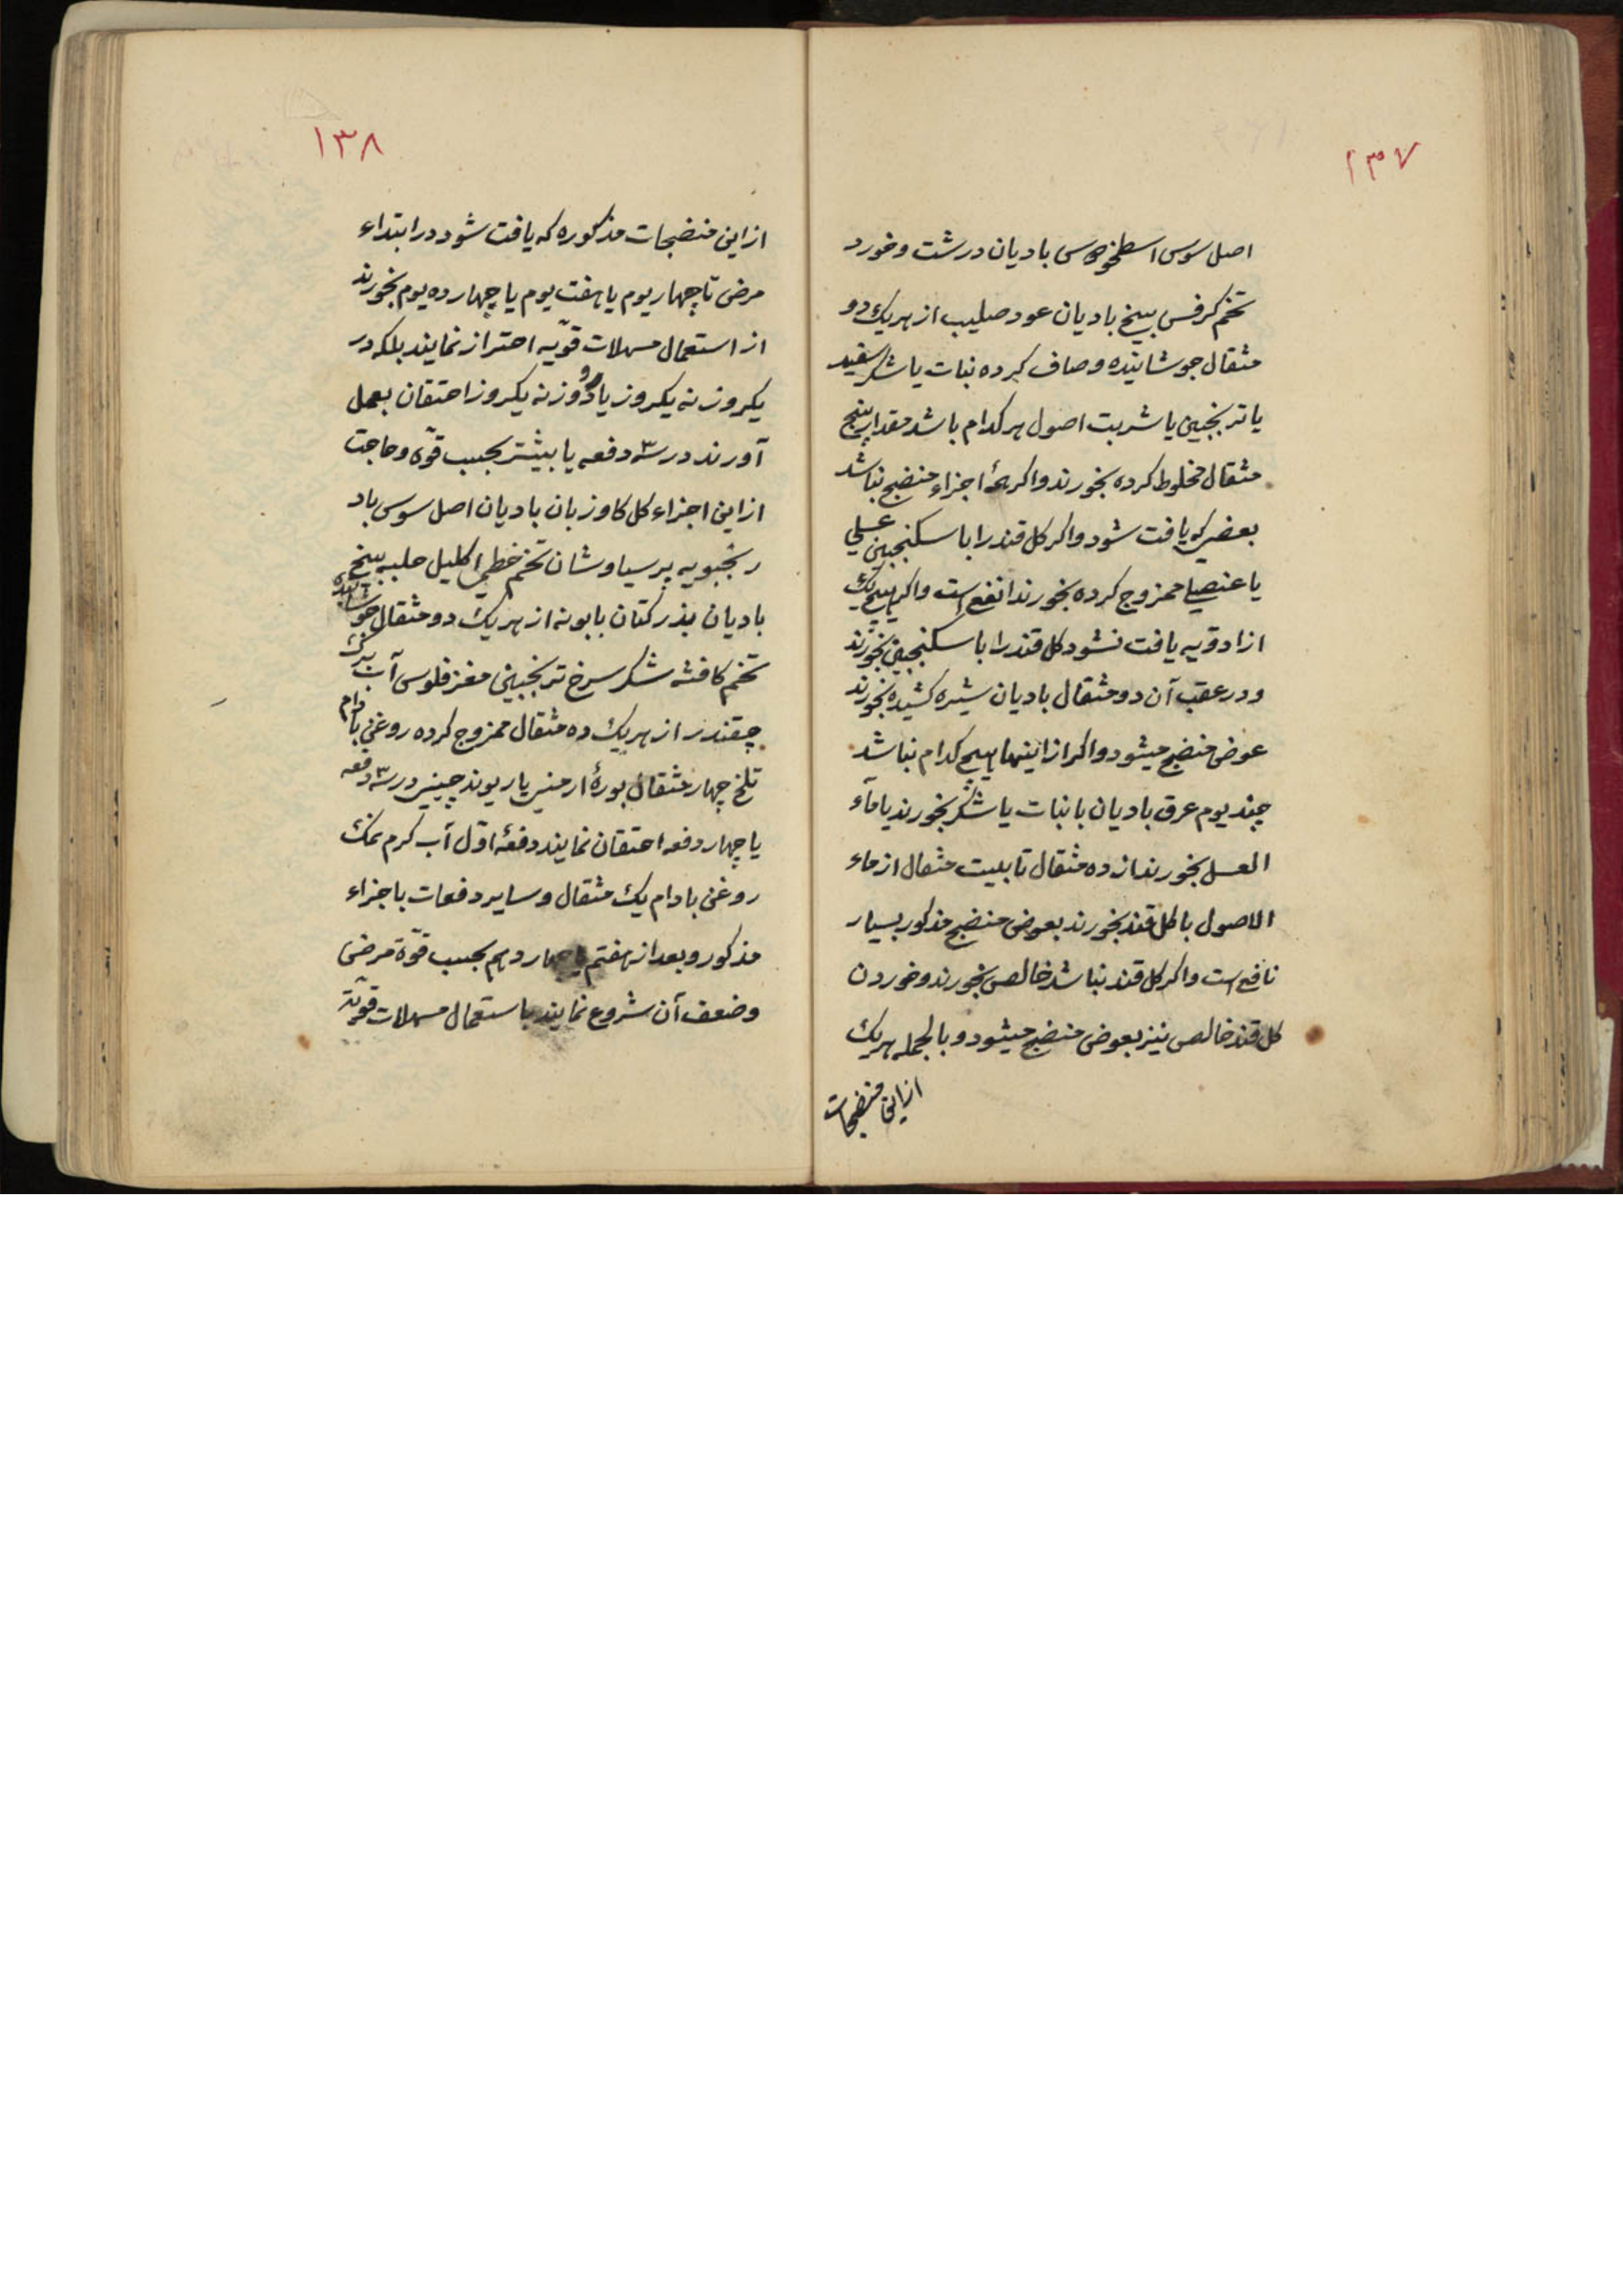 ۱۳۷
اصل سوس اسطوخودوس بادیان درشت و خورد
تخم کرفس بیخ بادیان عود صلیب از هریک دو
مثقال جوشانیده و صاف کرده نبات یا شکر سفید
یا ترنجبین یا شربت اصول هر کدام باشد مقدار پنج
مثقال مخلوط کرده بخورند و اکر همهٔ اجزاء منضج نباشد
بعضی که یافت شود و اکر کل قند را با سکنجبین عسلی
یا عنصلی ممزوج کرده بخورند انفع است و اکر هیچ یک
از ادویه یافت نشود کل قند را با سکنجبین بخورند
و در عقب آن دو مثقال بادیان شیره کشیده بخورند
عوض منضج میشود و اکر از اینها هیچ کدام نباشد
چند یوم عرق بادیان با نبات یا شکر بخورند یا مآء
العسل بخورند از ده مثقال تا بیست مثقال از ماء
الاصول با کل قند بخورند بعوض منضج مذکور بسیار
نافع است و اکر کل قند نباشد خالص بخورند و خوردن
کل قند خالص نیز بعوض منضج میشود و بالجمله هریک
از این منضجات
۱۳۸
از این منضجات مذکوره که یافت شود در ابتداء
مرض تا چهار یوم یا هفت یوم یا چهارده یوم بخورند
از استعمال مسهلات قویّه احتراز نمایند بلکه در
یکروز نه یکروز یا دو روز نه یکروز احتقان بعمل
آورند در سه دفعه یا بیشتر بحسب قوّه و حاجت
از این اجزاء کل کاوزبان بادیان اصل سوس باد
رنجبویه پرسیاوشان تخم خطمی اکلیل حلبه بیخ
بادیان بذر کتان بابونه از هریک دو مثقال جوشانیده
تخم کافشه شکر سرخ ترنجبین مغز فلوس آب برک
چقندر از هریک ده مثقال ممزوج کرده روغن بادام
تلخ چهار مثقال بورهٔ ارمنی یا ریوند چینی در سه دفعه
یا چهار دفعه احتقان نمایند دفعهٔ اوّل آب کرم نمک
روغن بادام یک مثقال و سایر دفعات باجزاء
مذکور و بعد از هفتم یا چهاردهم بحسب قوّة مرض
و ضعف آن شروع نمایند باستعمال مسهلات قویّة